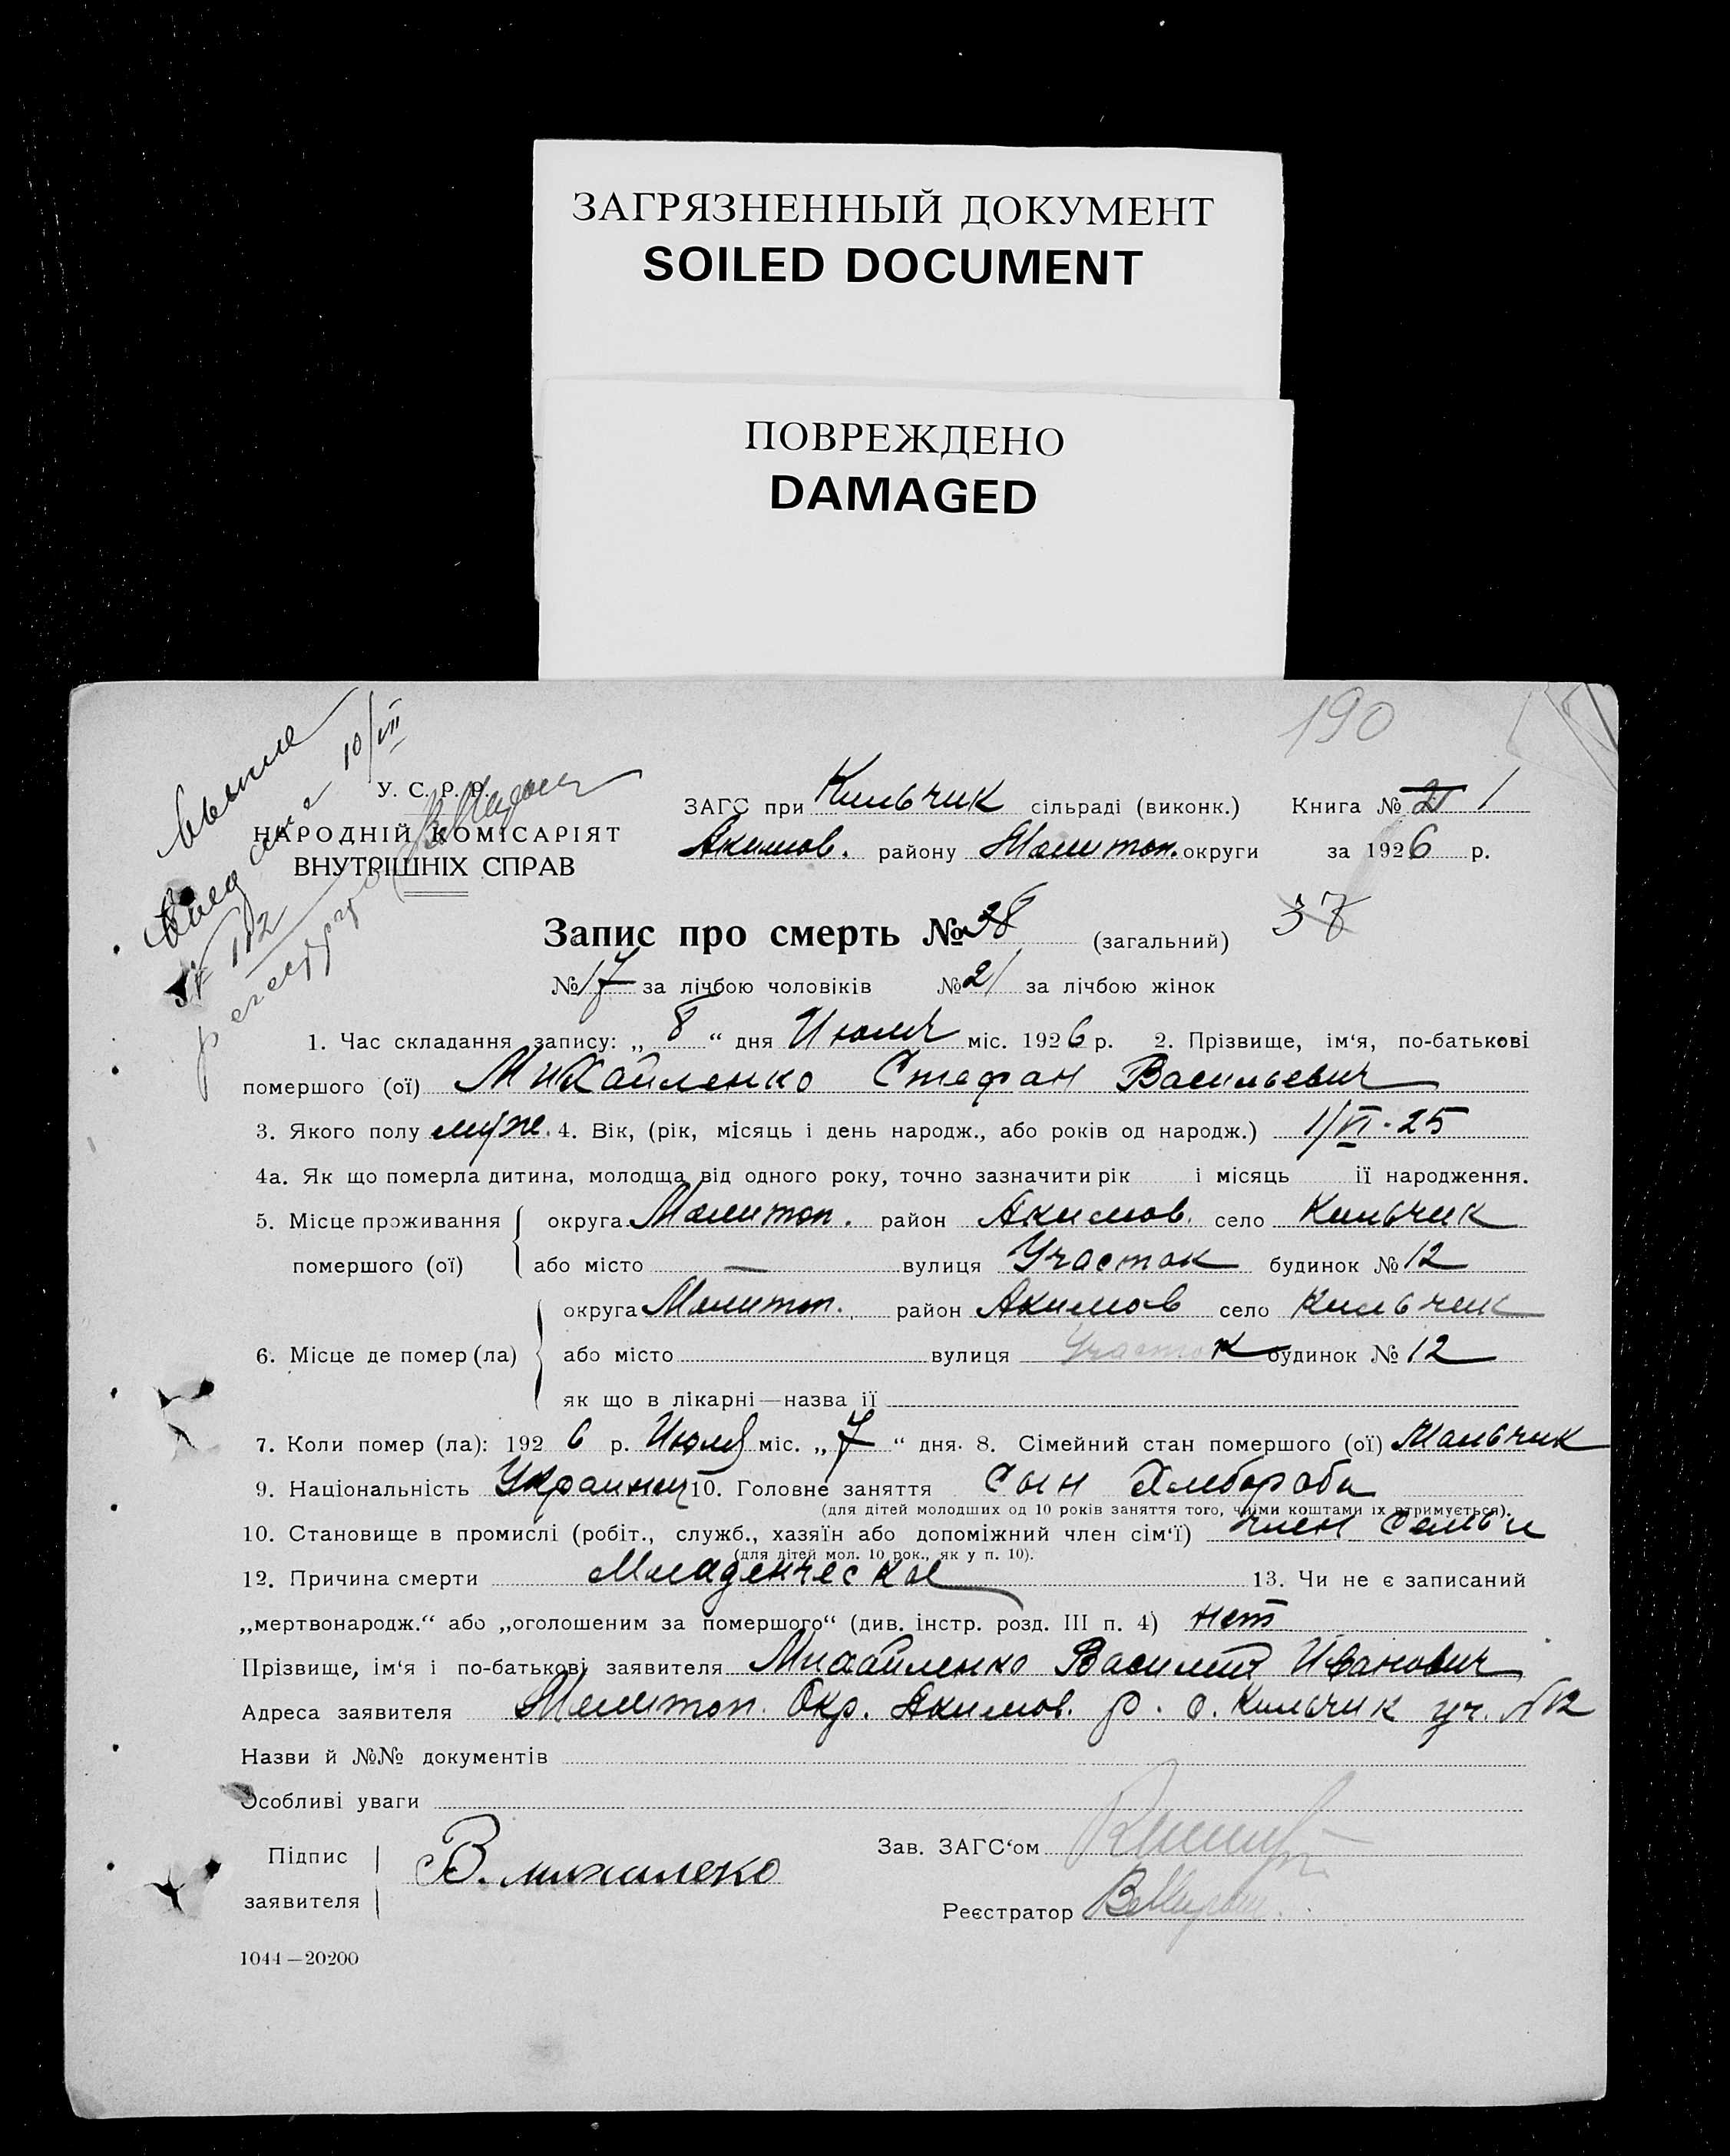 ЗАГРЯЗНЕННЫЙ ДОКУМЕНТ
SOILED DOCUMENT
ПОВРЕЖДЕНО
DAMAGED
190
10/VII
У. С. Р. Р.
НАРОДНІЙ КОМІСАРІЯТ
ВНУТРІШНІХ СПРАВ
№ 112
ЗАГС при Кильчик сільраді (виконк.) Книга № 1
Акимов. району Мелитоп. округи за 1926 р.
Запис про смерть № 38 (загальний) 37
№ 17 за лічбою чоловіків № 21 за лічбою жінок
1. Час складання запису: „ 8 “ дня Июля міс. 1926 р. 2. Прізвище, ім‘я, по-батькові
помершого (ої) Михайленко Стефан Васильевич
3. Якого полу муж. 4. Вік, (рік, місяць і день народж., або років од народж.) 1/VI-25
4а. Як що померла дитина, молодща від одного року, точно зазначити рік і місяць ії народження.
5. Місце проживання округа Мелитоп. район Акимов. село Кильчик
помершого (ої) або місто — вулиця Участок будинок № 12
округа Мелитоп. район Акимов село Кильчик
6. Місце де помер (ла) або місто вулиця Участок будинок № 12
як що в лікарні—назва ії
7. Коли помер (ла): 1926 р. Июля міс. „ 7 “ дня. 8. Сімейний стан помершого (ої) Мальчик
9. Національність Украинец 10. Головне заняття Сын Хлебороба
(для дітей молодших од 10 років заняття того, чиїми коштами їх втримується).
10. Становище в промислі (робіт., служб., хазяїн або допоміжний член сім‘ї) член семьи
(для дітей мол. 10 рок., як у п. 10).
12. Причина смерти Младенческая 13. Чи не є записаний
„мертвонародж.“ або „оголошеним за помершого“ (див. інстр. розд. III п. 4) нет
Прізвище, ім‘я і по-батькові заявителя Михайленко Василий Иванович
Адреса заявителя Мелитоп. Окр. Акимов. р. с. Кильчик уч. №12
Назви й №№ документів
Особливі уваги
Підпис
заявителя В. михаленко
Зав. ЗАГС‘ом
Реєстратор
1044—20200